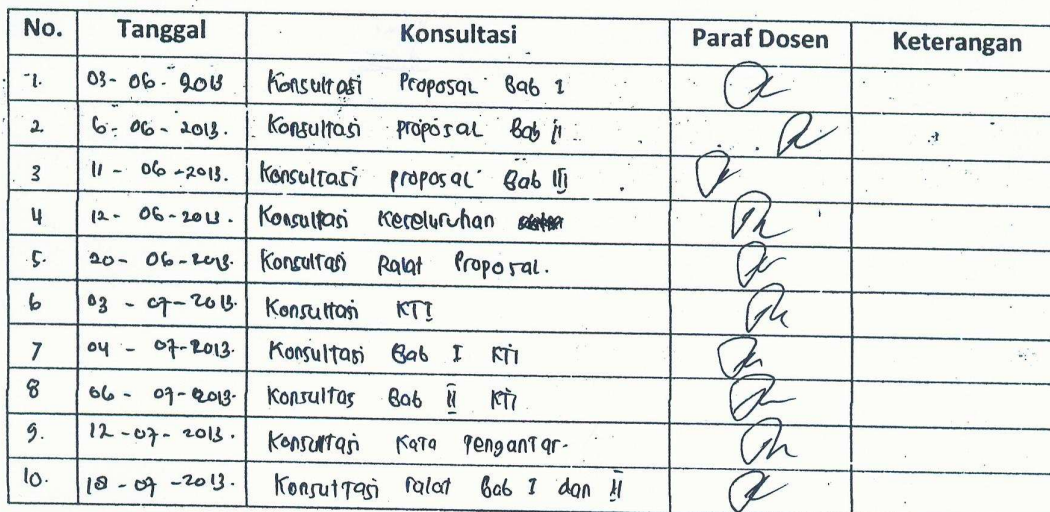 No. Tanggal Konsultasi Paraf Dosen Keterangan
1. 03-06-2013 Konsultasi Proposal Bab 1
2 6-06-2013. Konsultasi proposal Bab II
3 11-06-2013. Konsultasi proposal Bab III
4 12-06-2013. Konsultasi Keseluruhan
5. 20-06-2013. Konsultasi Ralat Proposal.
6 03-07-2013. Konsultasi KTI
7 04-07-2013. Konsultasi Bab I KTI
8 06-07-2013. Konsultas Bab II KTI
9. 12-07-2013. Konsultasi Kata Pengantar.
10. 18-07-2013. Konsultasi ralat Bab I dan II